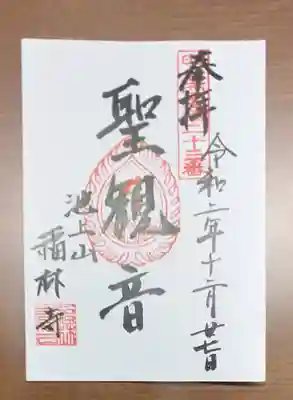 奉拝
十三番
令和二年十二月廿七日
聖観音
池上山
福林寺